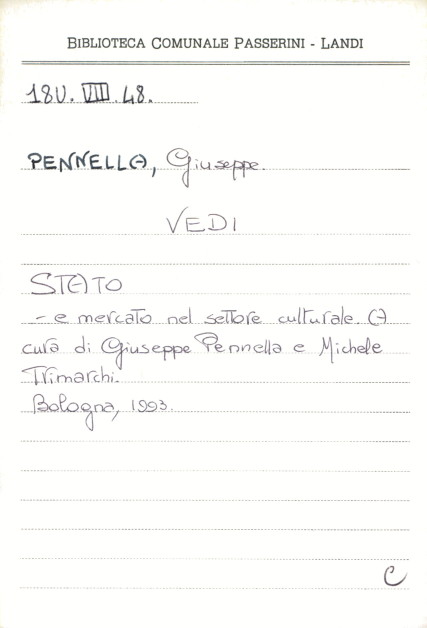 BIBLIOTECA COMUNALE PASSERINI - LANDI
18U. VIII. 48.
PENNELLA, Giuseppe.
VEDI
STATO
- e mercato nel settore culturale. A
cura di Giuseppe Pennella e Michele
Trimarchi.
Bologna, 1993.
C